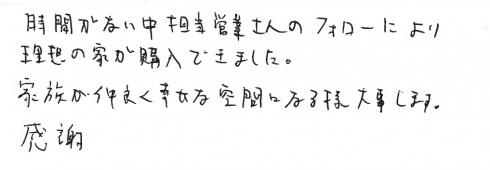 時間がない中担当営業さんのフォローにより
理想の家が購入できました。
家族が仲良く幸せな空間になる様大事します。
感謝